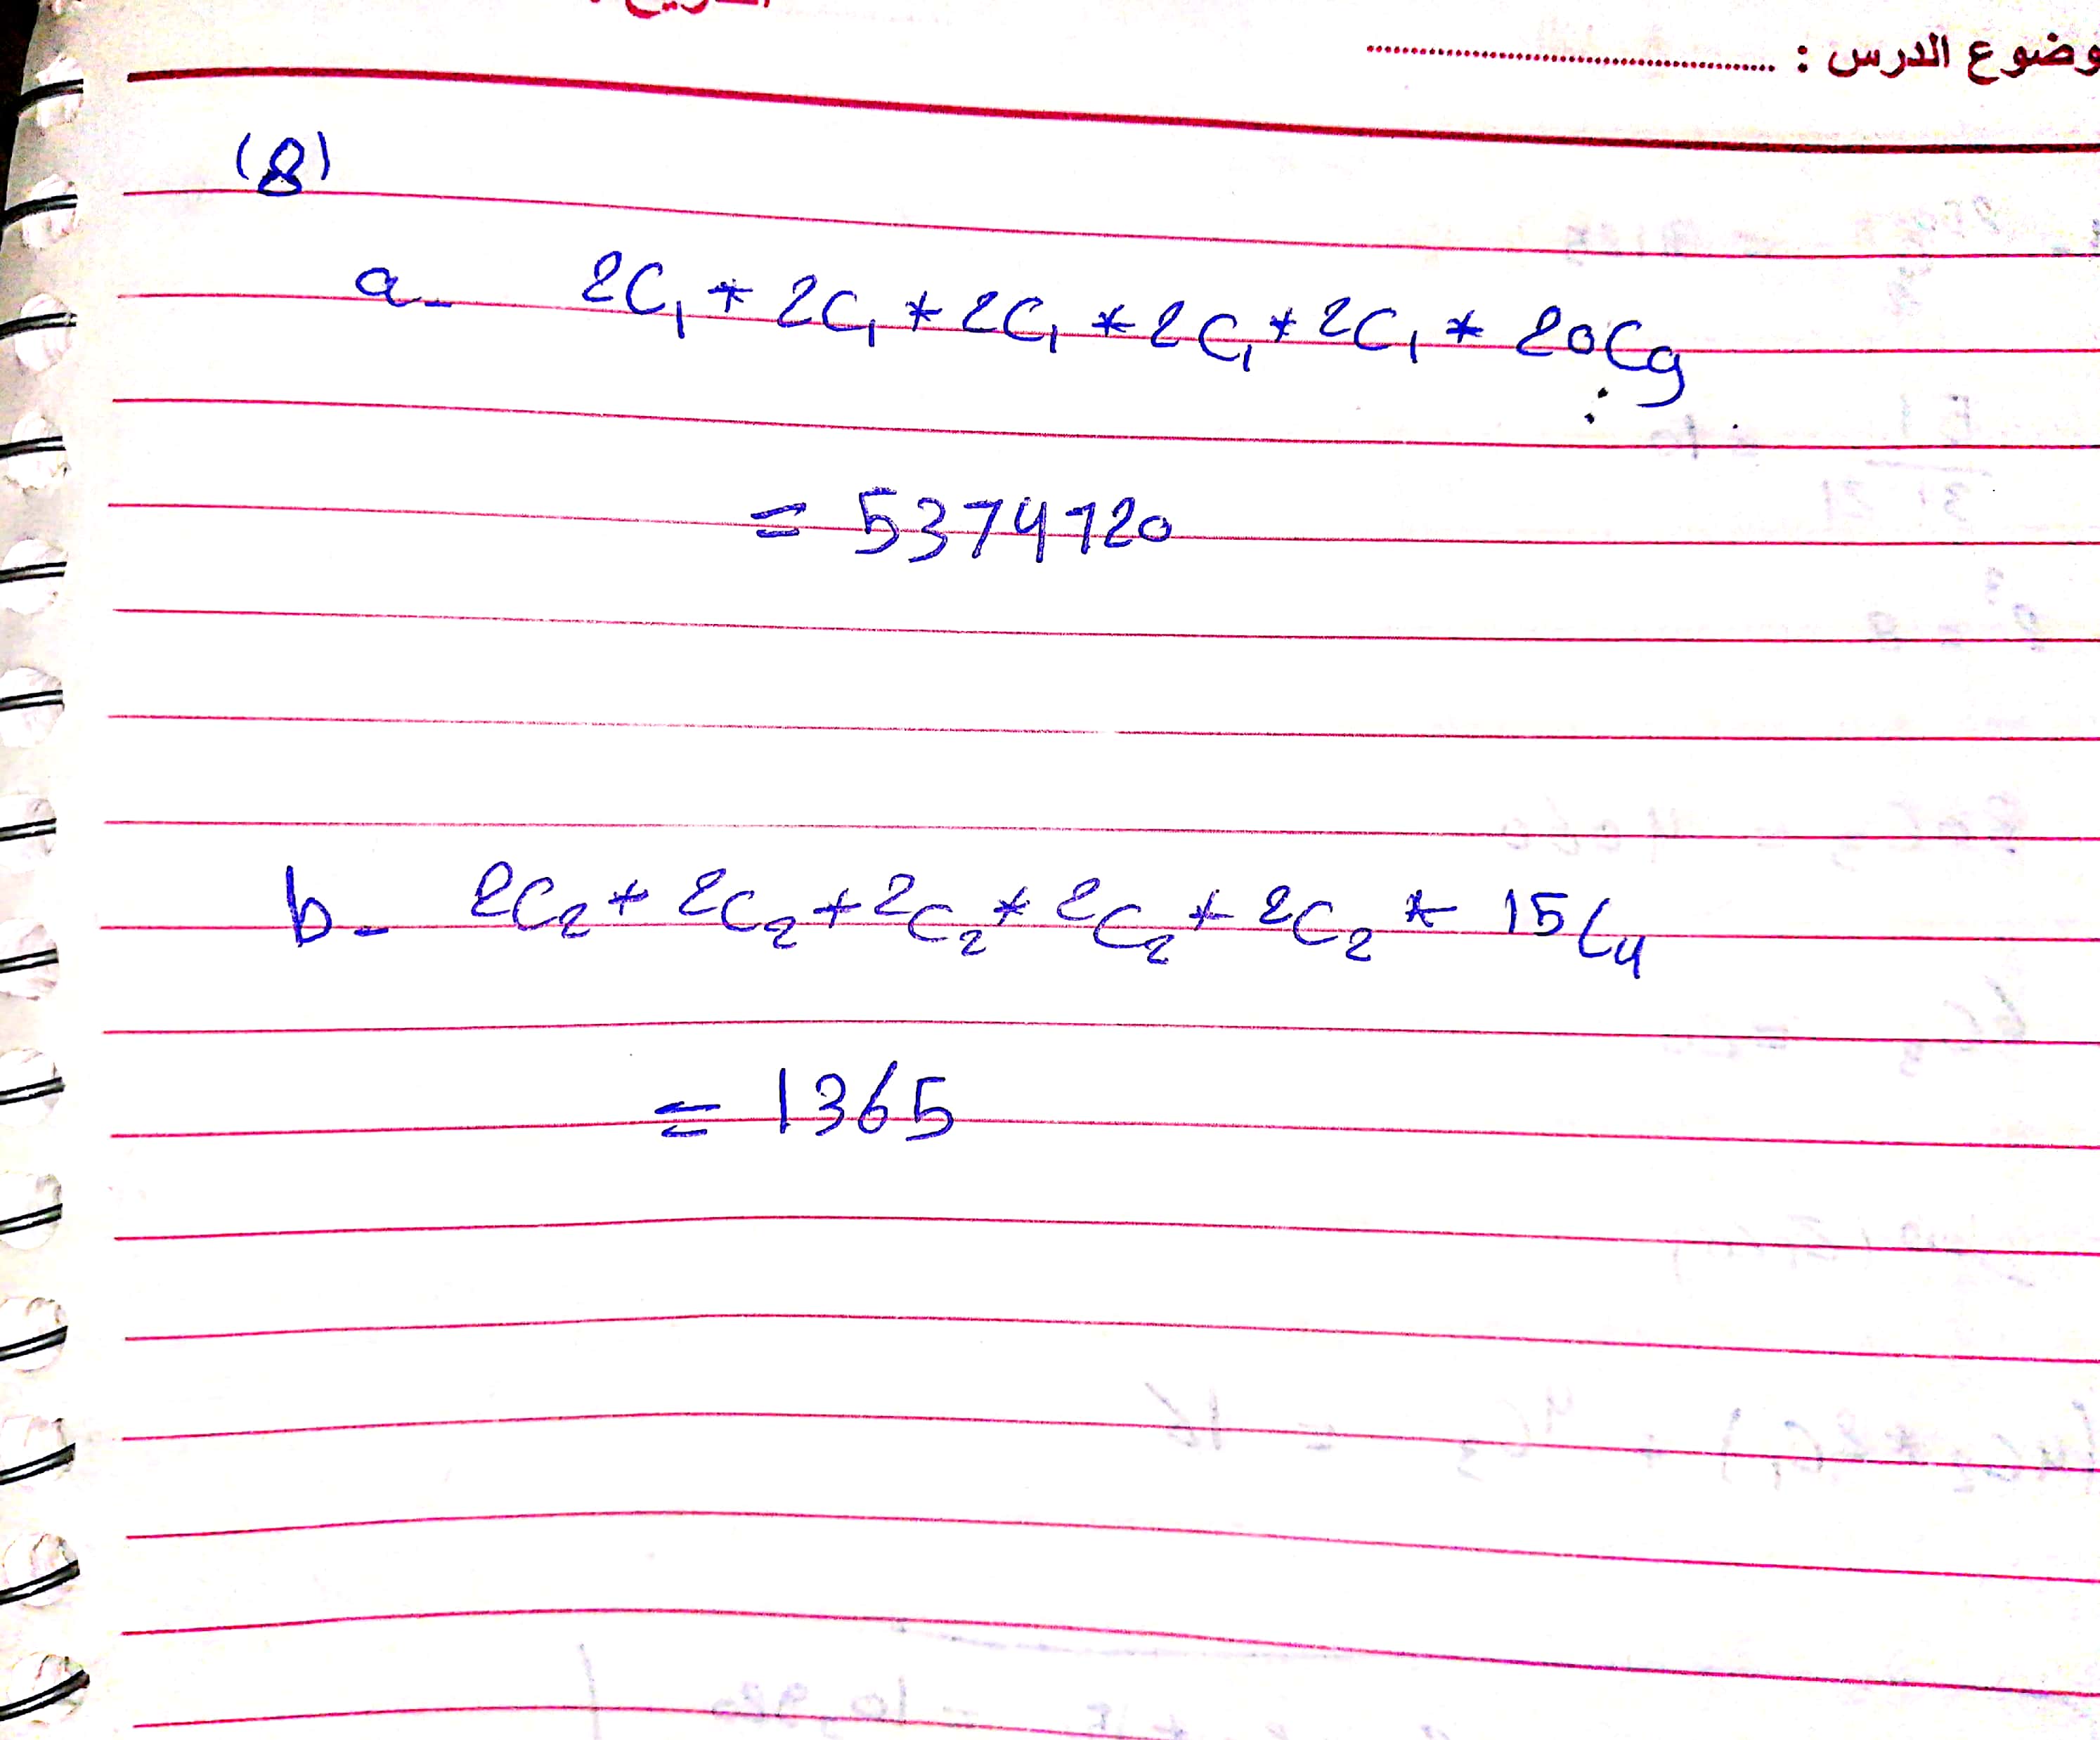 وضوع الدرس :
(8)
a- 2C₁ * 2C₁ * 2C₁ * 2C₁ * 2C₁ * 20C9
= 5374720
b- 2C₂ * 2C₂ * 2C₂ * 2C₂ * 2C₂ * 15C₄
= 1365